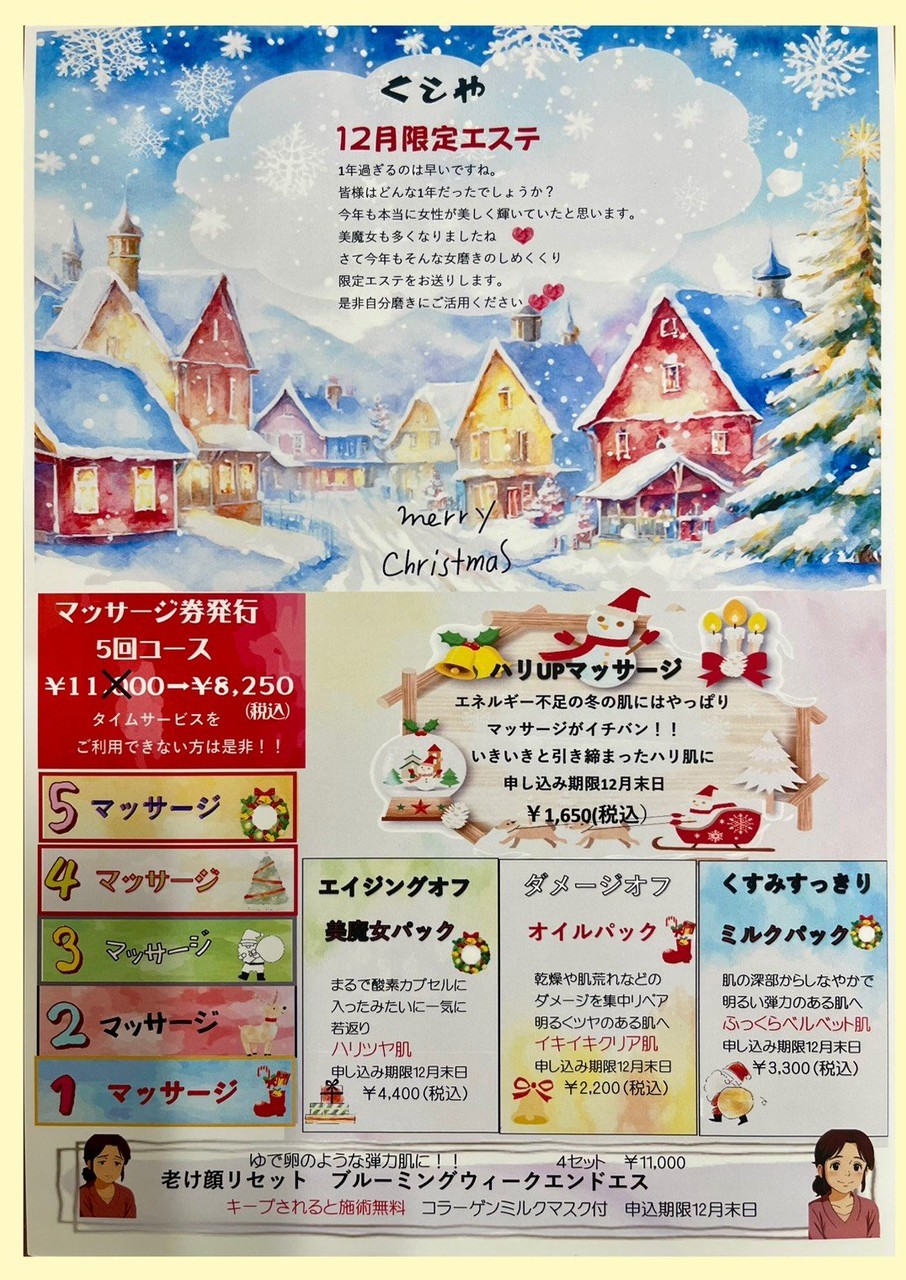 くしや
12月限定エステ
1年過ぎるのは早いですね。
皆様はどんな1年だったでしょうか？
今年も本当に女性が美しく輝いていたと思います。
美魔女も多くなりましたね
さて今年もそんな女磨きのしめくくり
限定エステをお送りします。
是非自分磨きにご活用ください
merry
Christmas
マッサージ券発行
5回コース
¥11,000→¥8,250
(税込)
タイムサービスを
ご利用できない方は是非！！
5 マッサージ
4 マッサージ
3 マッサージ
2 マッサージ
1 マッサージ
ハリUPマッサージ
エネルギー不足の冬の肌にはやっぱり
マッサージがイチバン！！
いきいきと引き締まったハリ肌に
申し込み期限12月末日
￥1,650(税込)
エイジングオフ
美魔女パック
まるで酸素カプセルに
入ったみたいに一気に
若返り
ハリツヤ肌
申し込み期限12月末日
￥4,400(税込)
ダメージオフ
オイルパック
乾燥や肌荒れなどの
ダメージを集中リペア
明るくツヤのある肌へ
イキイキクリア肌
申し込み期限12月末日
￥2,200(税込)
くすみすっきり
ミルクパック
肌の深部からしなやかで
明るい弾力のある肌へ
ふっくらベルベット肌
申し込み期限12月末日
￥3,300(税込)
ゆで卵のような弾力肌に！！ 4セット ￥11,000
老け顔リセット ブルーミングウィークエンドエス
キープされると施術無料 コラーゲンミルクマスク付 申込期限12月末日